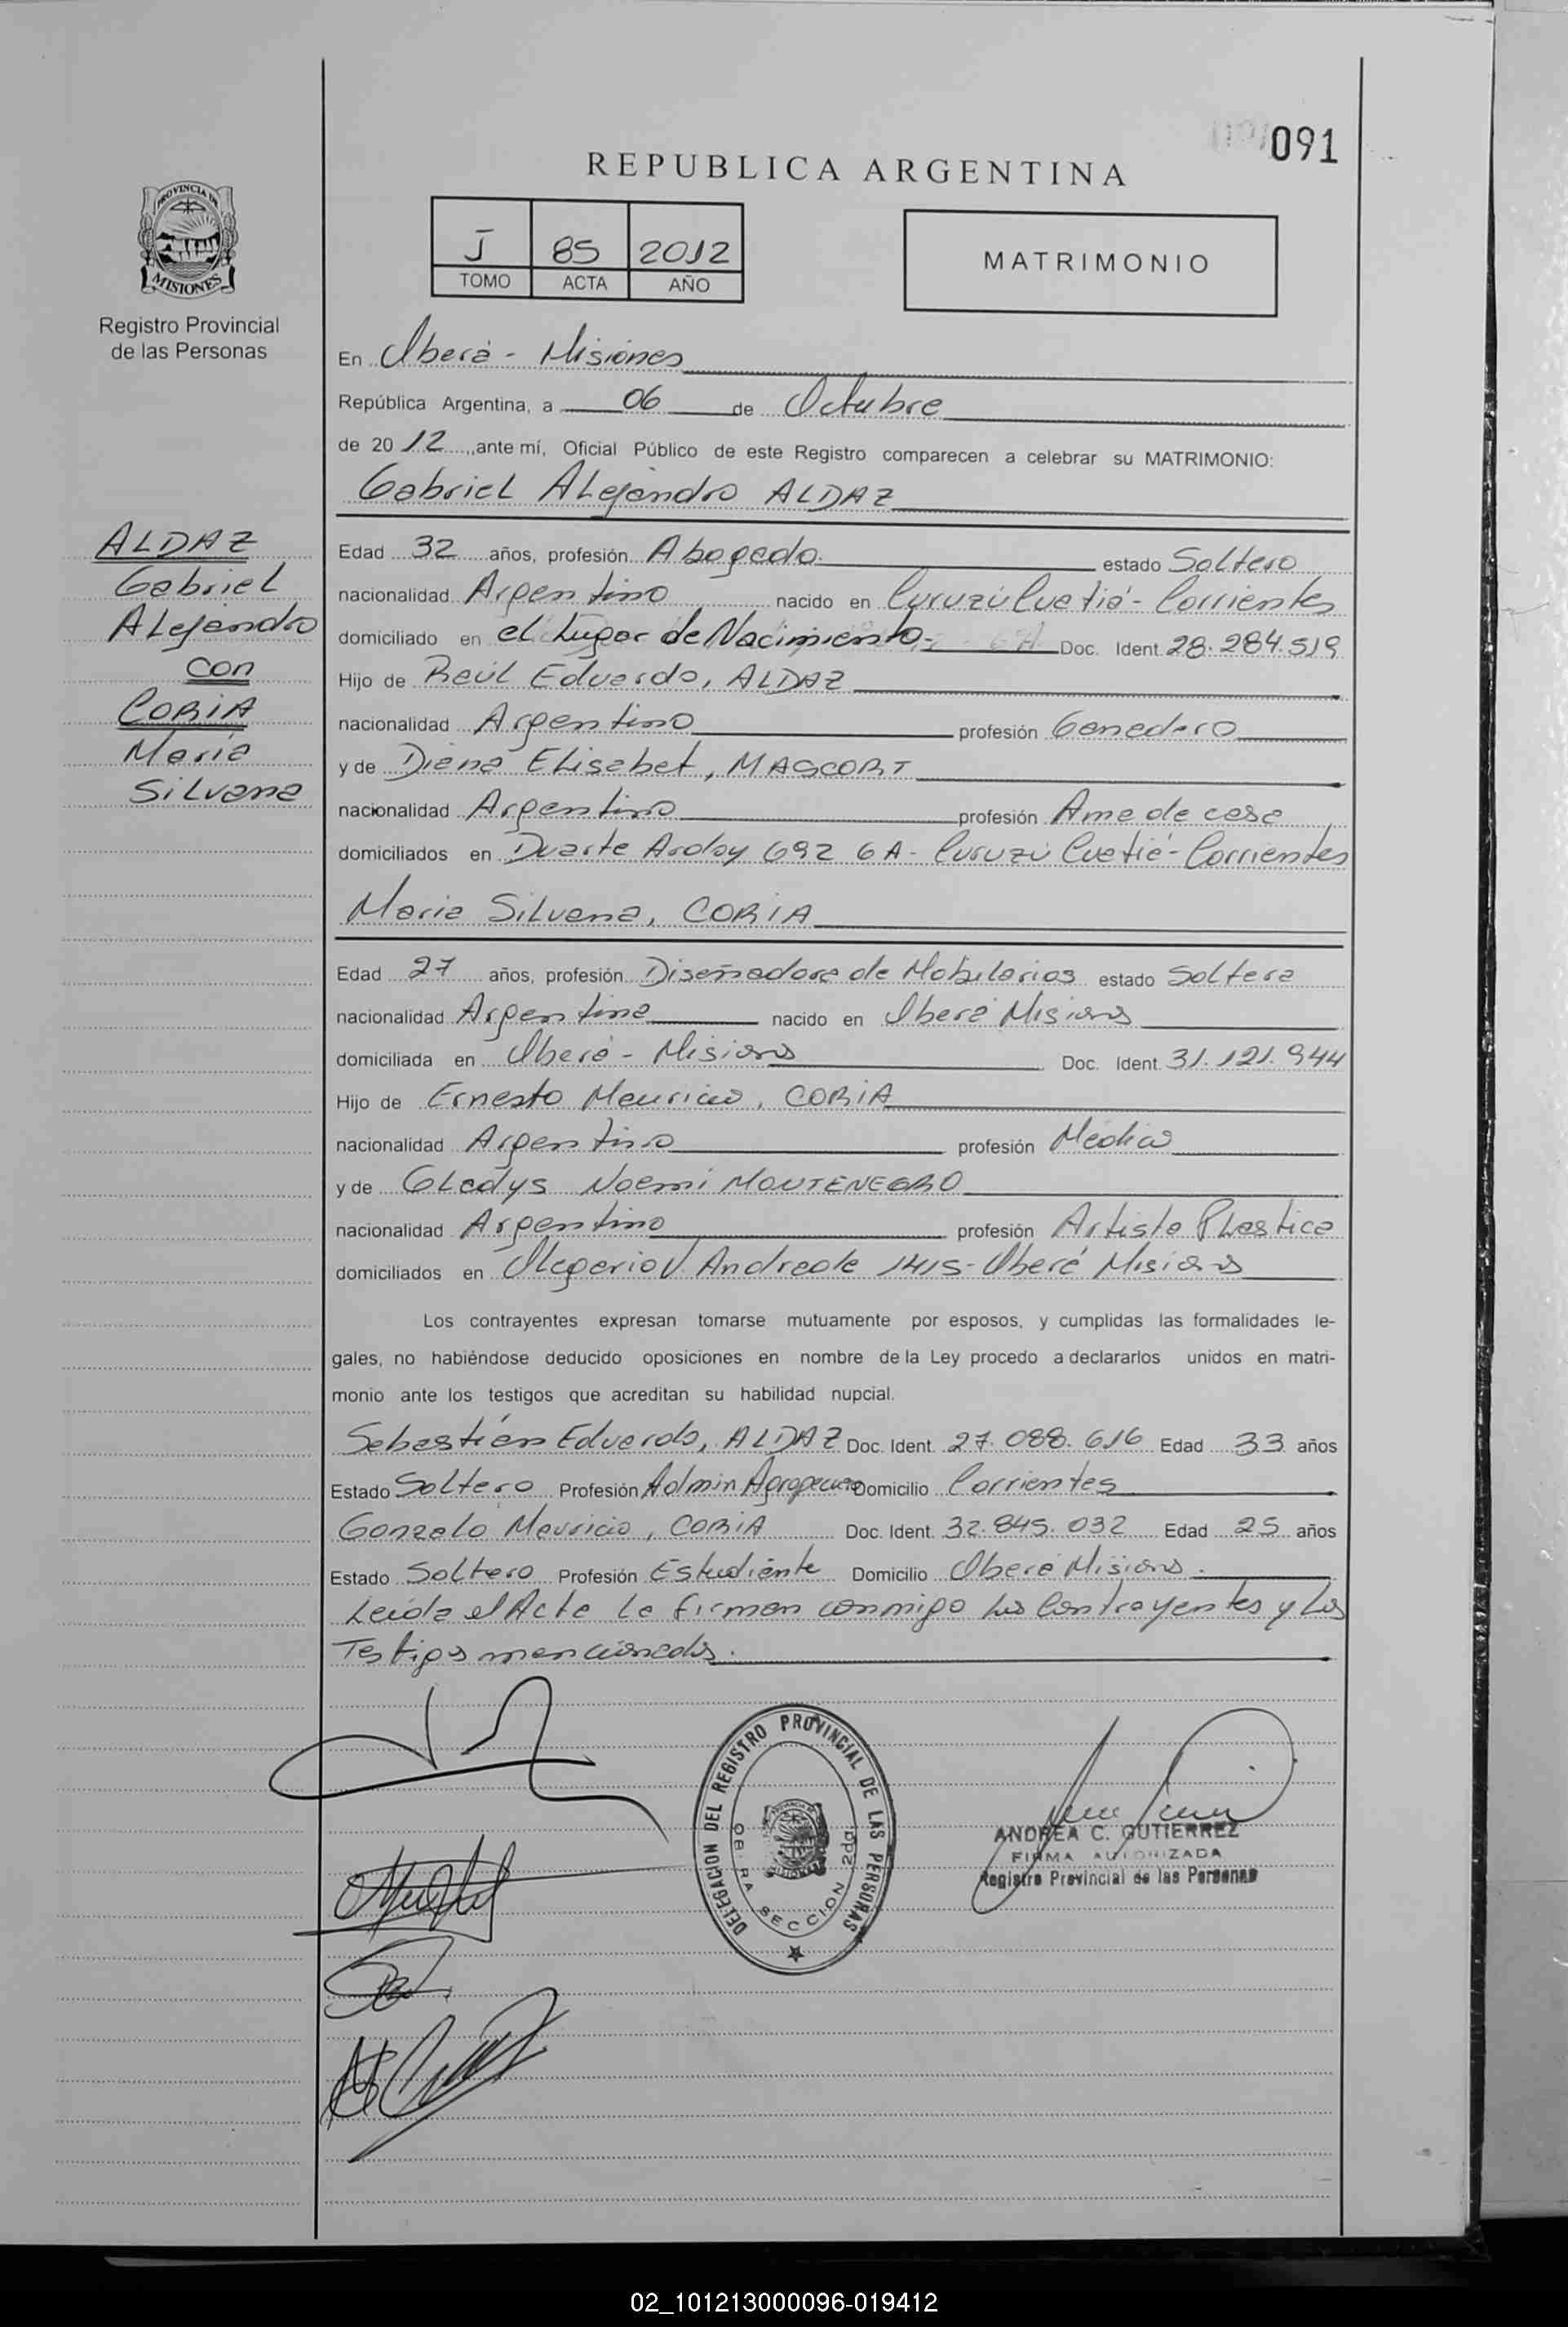 091
REPUBLICA ARGENTINA
PROVINCIA DE
MISIONES
Registro Provincial
de las Personas
J 85 2012
TOMO ACTA AÑO
MATRIMONIO
En Oberá - Misiones
República Argentina, a 06 de Octubre
de 20 12 ,ante mí, Oficial Público de este Registro comparecen a celebrar su MATRIMONIO:
Gabriel Alejandro ALDAZ
ALDAZ
Gabriel
Alejandro
con
CORIA
María
Silvana
Edad 32 años, profesión Abogado estado Soltero
nacionalidad Argentino nacido en Curuzú Cuatiá - Corrientes
domiciliado en el Lugar de Nacimiento- Doc. Ident. 28.284.519
Hijo de Raúl Eduardo, ALDAZ
nacionalidad Argentino profesión Ganadero
y de Diana Elisabet, MASCORT
nacionalidad Argentino profesión Ama de casa
domiciliados en Duarte Ardoy 692 6A - Curuzú Cuatiá - Corrientes
María Silvana, CORIA
Edad 27 años, profesión Diseñadora de Mobilarios estado Soltera
nacionalidad Argentina nacido en Oberá Misiones
domiciliada en Oberá - Misiones Doc. Ident. 31.121.944
Hijo de Ernesto Mauricio, CORIA
nacionalidad Argentino profesión Medico
y de Gladys Noemí MONTENEGRO
nacionalidad Argentino profesión Artista Plastica
domiciliados en Olegario V. Andrade 1415 - Oberá Misiones
Los contrayentes expresan tomarse mutuamente por esposos, y cumplidas las formalidades le-
gales, no habiéndose deducido oposiciones en nombre de la Ley procedo a declararlos unidos en matri-
monio ante los testigos que acreditan su habilidad nupcial.
Sebastián Eduardo, ALDAZ Doc. Ident. 27.088.616 Edad 33 años
Estado Soltero Profesión Admin Agropecuario Domicilio Corrientes
Gonzalo Mauricio, CORIA Doc. Ident. 32.845.032 Edad 25 años
Estado Soltero Profesión Estudiante Domicilio Oberá Misiones.
Leída el Acta la firman conmigo los Contrayentes y los
Testigos mencionados.
DELEGACION DEL REGISTRO PROVINCIAL DE LAS PERSONAS
SECCION 2da.
ANDREA C. GUTIERREZ
FIRMA AUTORIZADA
Registro Provincial de las Personas
02_101213000096-019412